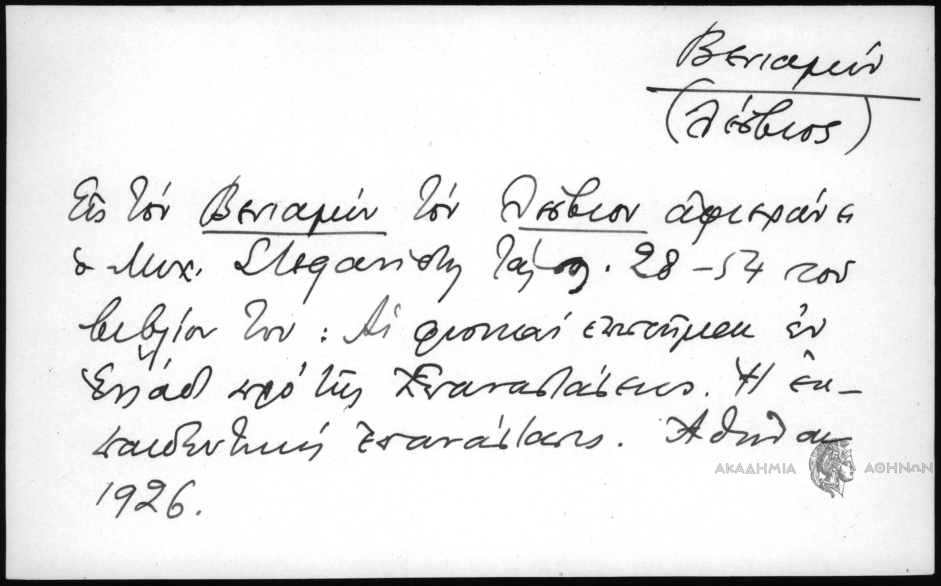 Βενιαμίν
(Λέσβιος)
Εἰς τόν Βενιαμίν τόν Λέσβιον ἀφιερώνει
ὁ Μιχ. Στεφανίδης τάς σσ. 28-54 τοῦ
βιβλίου του: Αἱ φυσικαί ἐπιστῆμαι ἐν
Ἑλλάδι πρό τῆς Ἐπαναστάσεως. Ἡ ἐκ-
παιδευτική ἐπανάστασις. Ἀθῆναι
ΑΚΑΔΗΜΙΑ ΑΘΗΝΩΝ
1926.